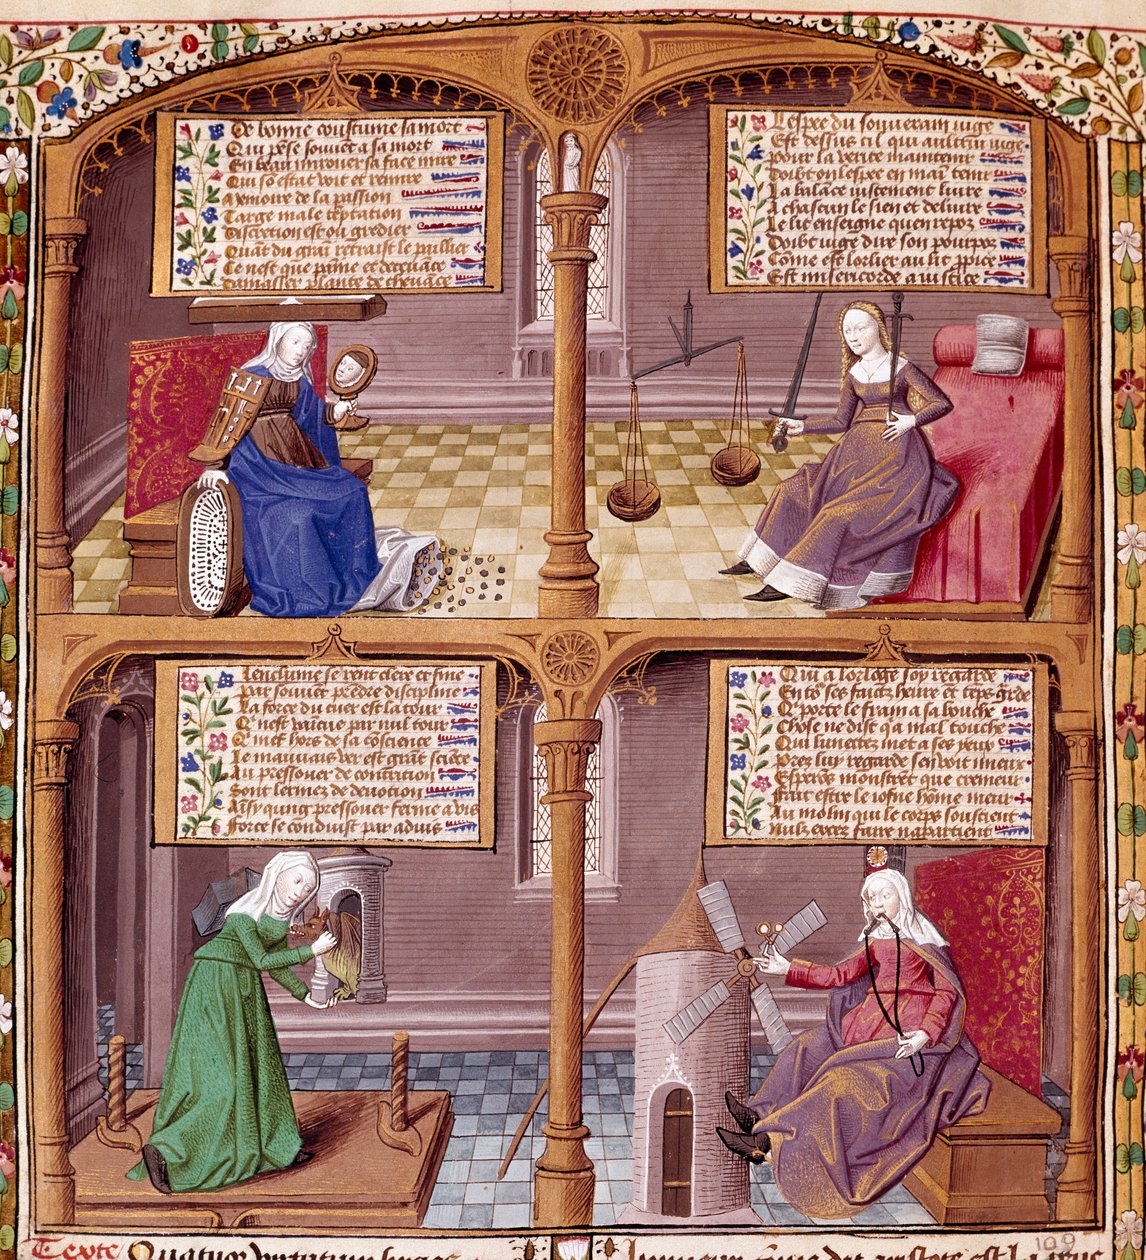 De bonne coustume sa mort
Qui pẽse souuẽt a sa mort
En beau mirouer sa face mire
Qui sõ estat voit et remire
Armoire de la passion
Targe male tẽptation
Discretion est ou gredier
Quãt du grain retrait le paillier
Ce nest que paine et deceuãce
Damasser plante de cheuãce
Lespee du souuerain iuge
Est dessus cil qui aultrui iuge
Pour la verite maintenir
Doibt on lespee en main tenir
La balãce iustement liure
A chascun le sien et deliure
Le lit enseigne quen repoz
Doibt iuge dire son pourpoz
Cõme est lorlier au lit ppice
Est misericorde a iustice
Lenclume se rent clere et fine
Par souuẽt prẽdre discipline
La force du cuer est la tour
Qui nest vaincue par nul tour
Qui met hors de sa cõscience
Le mauuais ver est grãt sciẽce
Au pressouer de contricion
Sont lermez de deuotion
Ainsy qung pressouer ferme a vis
Force se conduist par aduis
Qui a lorloge soy regarde
En toꝰ ses faictz heure et tẽps garde
Qui porte le frain a sa bouche
Chose ne dist qui a mal touche
Qui lunettez met a ses yeux
Prez luy regarde sen voit mieux
Esperõs monstrẽt que cremeur
Fait estre le iosne hõme meur
Au molin qui le corps soustient
Nulz excez faire napartient
Texte Quatuor
109